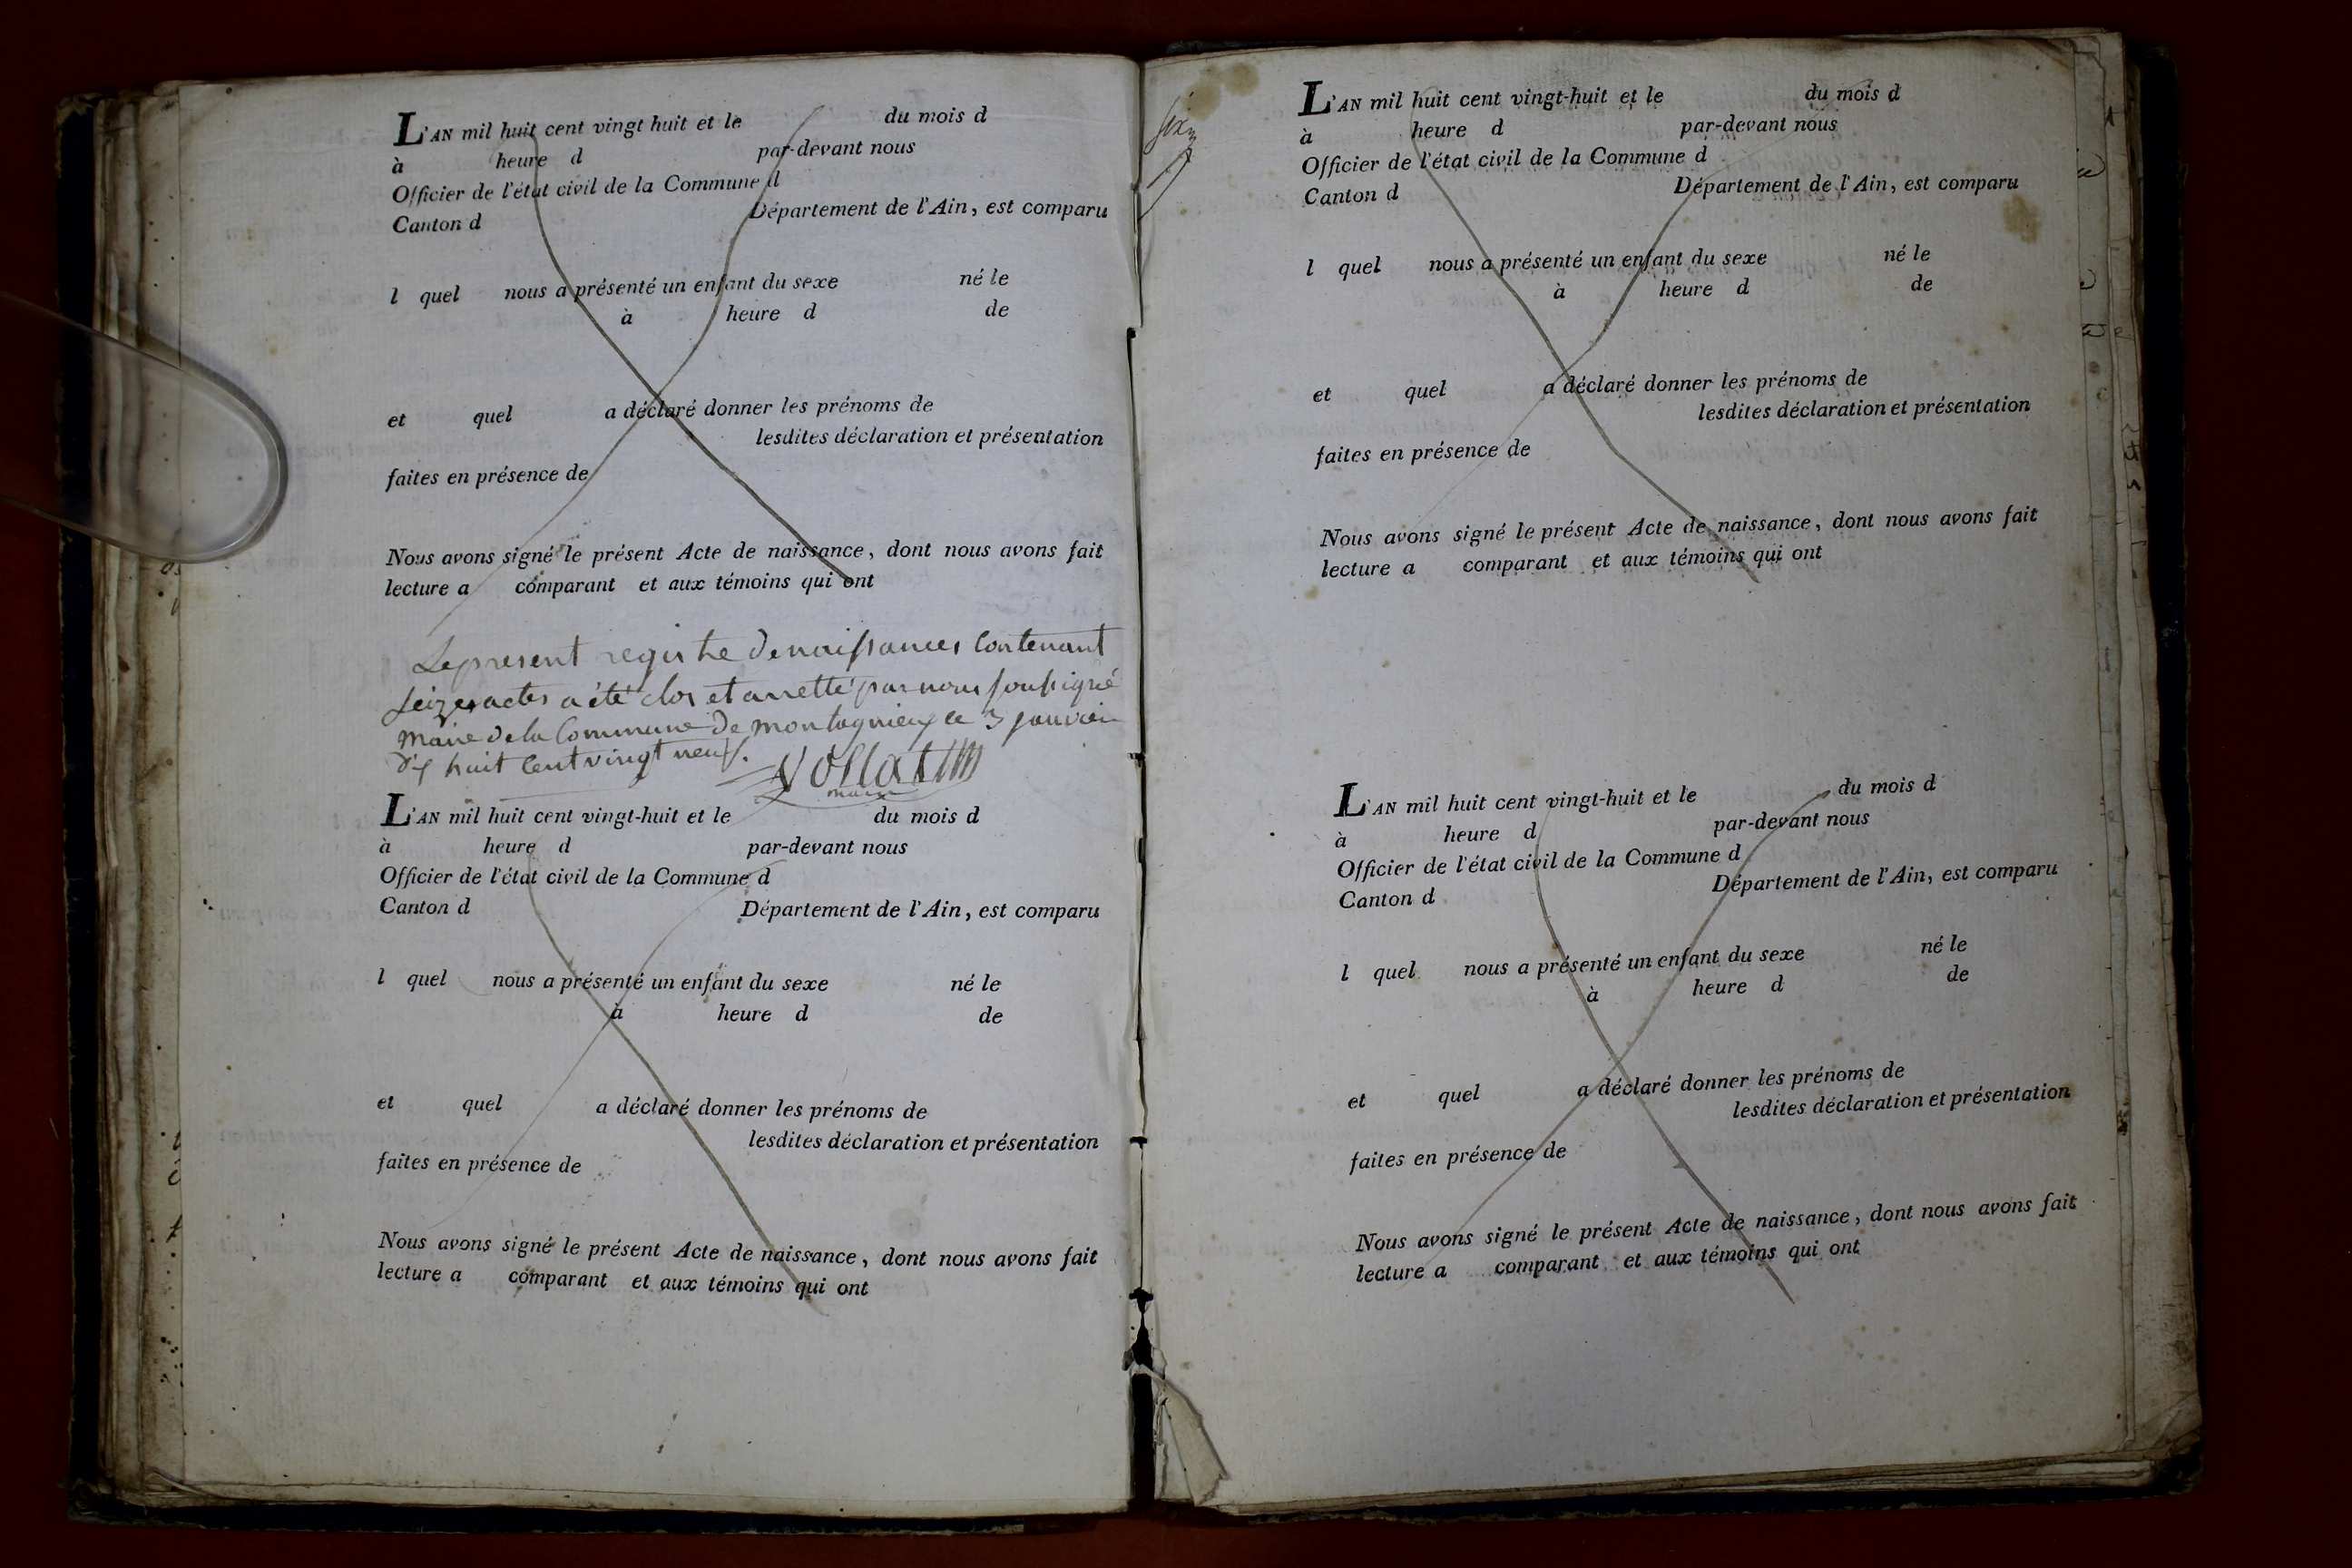 L'AN mil huit cent vingt huit et le du mois d
à heure d par-devant nous
Officier de l'état civil de la Commune d
Canton d Département de l'Ain, est comparu
l quel nous a présenté un enfant du sexe né le
à heure d de
et quel a déclaré donner les prénoms de
lesdites déclaration et présentation
faites en présence de
Nous avons signé le présent Acte de naissance, dont nous avons fait
lecture a comparant et aux témoins qui ont
Le present registre de naissances contenant
seize actes a été clos et arretté par nous soussigné
maire de la Commune de montagnieux le 3 janvier
dix huit cent vingt neuf.
maire
L'AN mil huit cent vingt-huit et le du mois d
à heure d par-devant nous
Officier de l'état civil de la Commune d
Canton d Département de l'Ain, est comparu
l quel nous a présenté un enfant du sexe né le
à heure d de
et quel a déclaré donner les prénoms de
lesdites déclaration et présentation
faites en présence de
Nous avons signé le présent Acte de naissance, dont nous avons fait
lecture a comparant et aux témoins qui ont
six
L'AN mil huit cent vingt-huit et le du mois d
à heure d par-devant nous
Officier de l'état civil de la Commune d
Canton d Département de l'Ain, est comparu
l quel nous a présenté un enfant du sexe né le
à heure d de
et quel a déclaré donner les prénoms de
lesdites déclaration et présentation
faites en présence de
Nous avons signé le présent Acte de naissance, dont nous avons fait
lecture a comparant et aux témoins qui ont
L'AN mil huit cent vingt-huit et le du mois d
à heure d par-devant nous
Officier de l'état civil de la Commune d
Canton d Département de l'Ain, est comparu
l quel nous a présenté un enfant du sexe né le
à heure d de
et quel a déclaré donner les prénoms de
lesdites déclaration et présentation
faites en présence de
Nous avons signé le présent Acte de naissance, dont nous avons fait
lecture a comparant et aux témoins qui ont